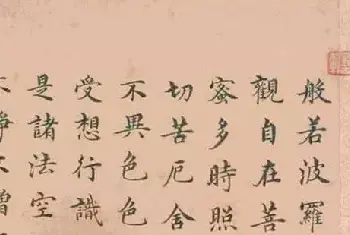 般若波羅
觀自在菩
蜜多時照
切苦厄舍
不異色色
受想行識
是諸法空
不淨不增